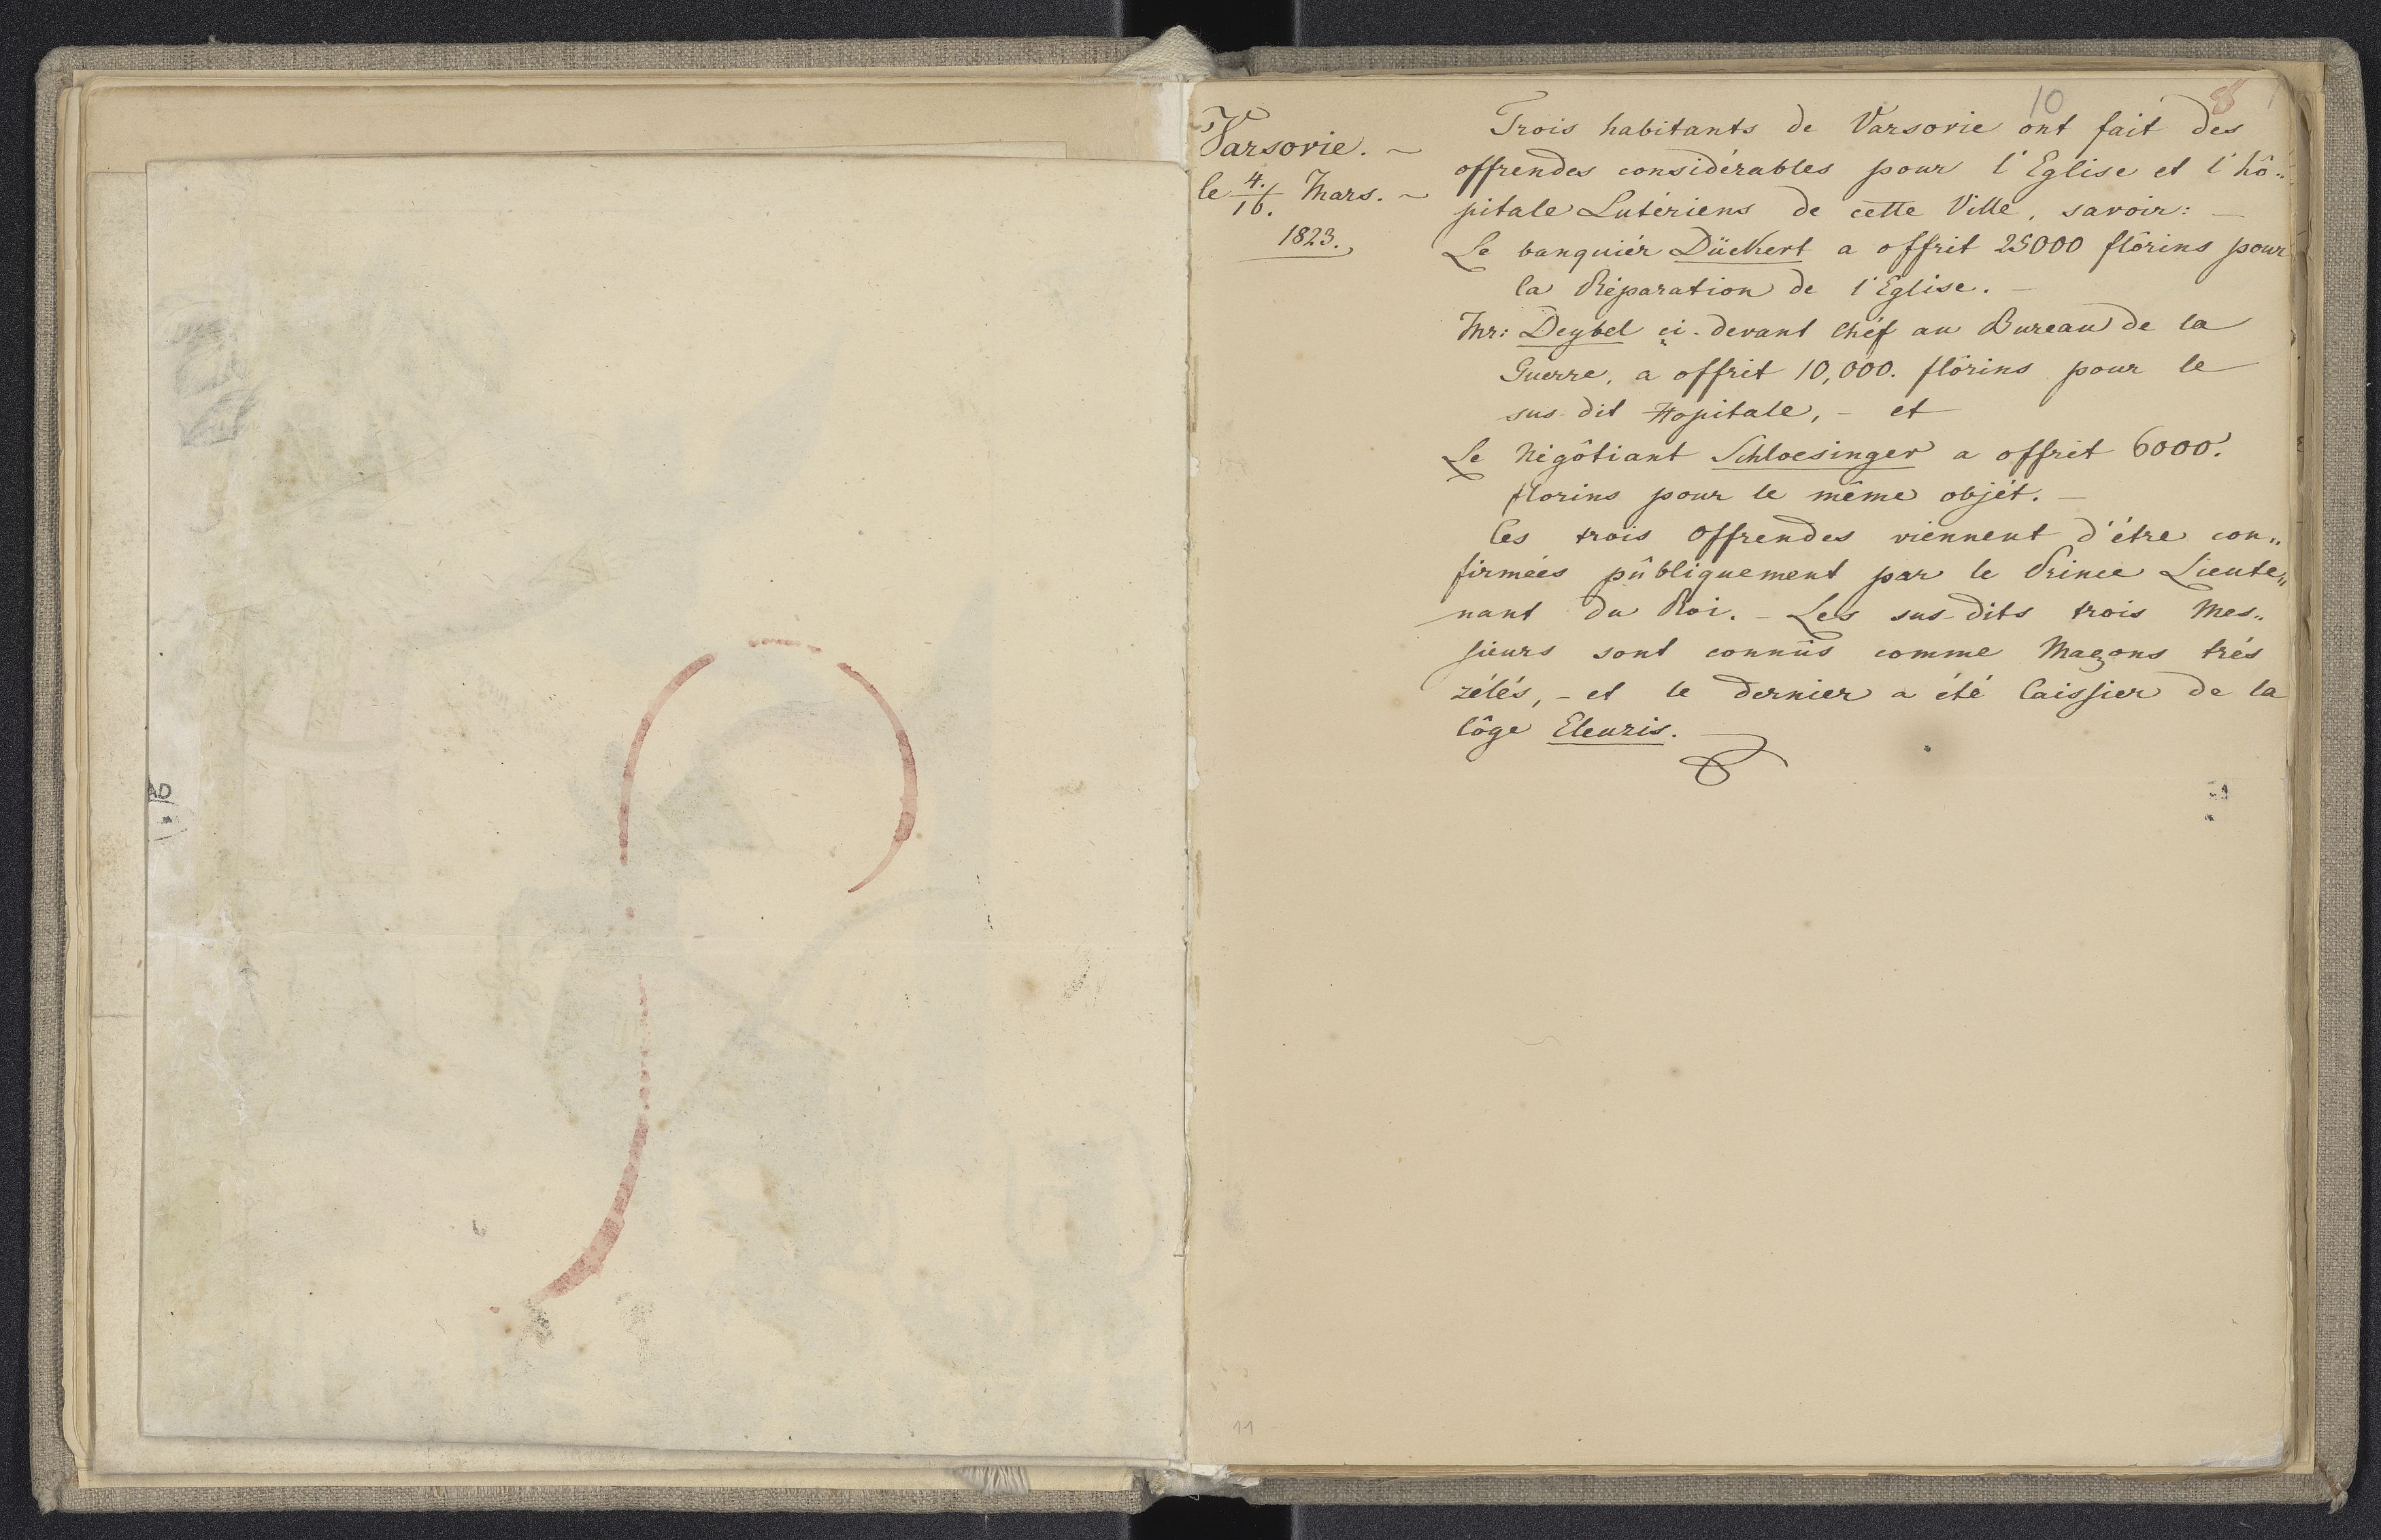 10
8
Varsovie. ~
le 4./16. Mars. ~
1823.
Trois habitants de Varsovie ont fait des
offrendes considérables pour l'Eglise et l'hô„
pitale Lutériens de cette Ville, savoir: —
Le banquiér Dückert a offrit 25000 flórins pour
la Réparation de l'Eglise. —
Mr: Deybel ci-devant Chéf au Bureau de la
Guerre, a offrit 10,000. flórins pour le
sus-dit Hopitale, – et
Le Négôtiant Schloesinger a offrit 6000.
florins pour le même objét. —
Ces trois Offrendes viennent d'étre con„
firmées pûbliquement par le Prince Lieute„
nant du Roi. – Les sus-dits trois Mes„
sieurs sont connûs comme Maçons trés
zélés, – et le dernier a été Caissier de la
lôge Eleuzis.
AD
11